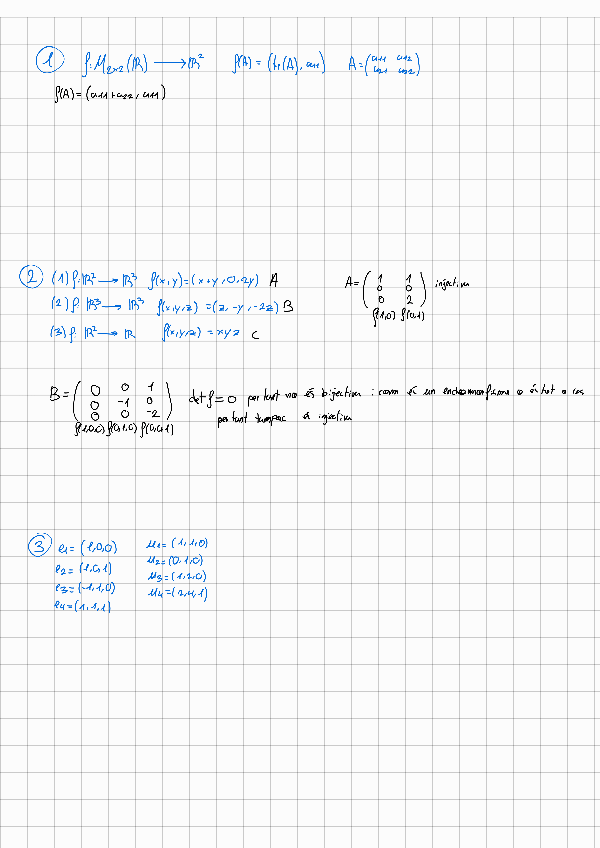 ① f: M₂ₓ₂(ℝ) ⟶ ℝ² f(A) = (tr(A), a₁₁) A = (a₁₁ a₁₂
a₂₁ a₂₂)
f(A) = (a₁₁ + a₂₂, a₁₁)
② (1) f: ℝ² ⟶ ℝ³ f(x,y) = (x+y, 0, 2y) A
(2) f: ℝ³ ⟶ ℝ³ f(x,y,z) = (z, -y, -2z) B
(3) f: ℝ² ⟶ ℝ f(x,y,z) = xyz C
A = (1 1
0 0
0 2) injectiva
f(1,0) f(0,1)
B = (0 0 1
0 -1 0
0 0 -2)
f(1,0,0) f(0,1,0) f(0,0,1)
det f = 0 per tant no és bijectiva i com és un endomorfisme o és tot o res
per tant tampoc és injectiva
③ e₁ = (1,0,0) u₁ = (1,1,0)
e₂ = (1,0,1) u₂ = (0,1,0)
e₃ = (-1,1,0) u₃ = (1,2,0)
e₄ = (1,1,1) u₄ = (2,4,1)